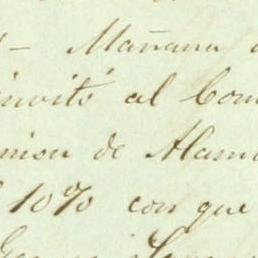 – Mañana
invitó al Com
nion de Alam
10% con que